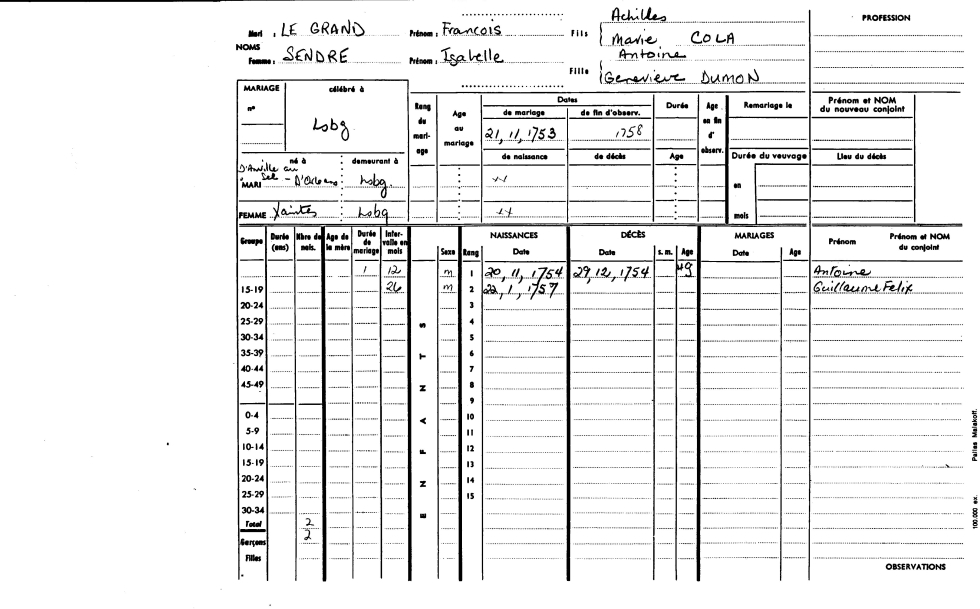 Achilles
Mari : LE GRAND Prénom : Francois Fils Marie COLA PROFESSION
NOMS
Femme : SENDRE Prénom : Isabelle Fille Antoine
Genevieve DUMON
MARIAGE célébré à
n° Lsbg
Rang du mariage Age au mariage Dates Durée Age en fin d'observ. Remariage le Prénom et NOM du nouveau conjoint
de mariage de fin d'observ.
21, 11, 1753 1758
de naissance de décès Age Durée du veuvage Lieu du décès
né à demeurant à
D'Anville au
MARI Sel - D'Orleans Lsbg. en
FEMME Xaintes Lsbg mois
Groupe Durée (ans) Nbre de nais. Age de la mère Durée de mariage Intervalle en mois Sexe Rang NAISSANCES Date DÉCÈS Date s. m. Age MARIAGES Date Age Prénom Prénom et NOM du conjoint
1 12 m 1 20, 11, 1754 29, 12, 1754 Antoine
15-19 26 m 2 22, 1, 1757 Guillaume Felix
20-24 3
25-29 4
30-34 5
35-39 6
40-44 7
45-49 8
9
0-4 10
5-9 11
10-14 12
15-19 13
20-24 14
25-29 15
30-34
Total 2
Garçons 2
Filles
ENFANTS
OBSERVATIONS
100.000 ex. Pallas Malakoff.